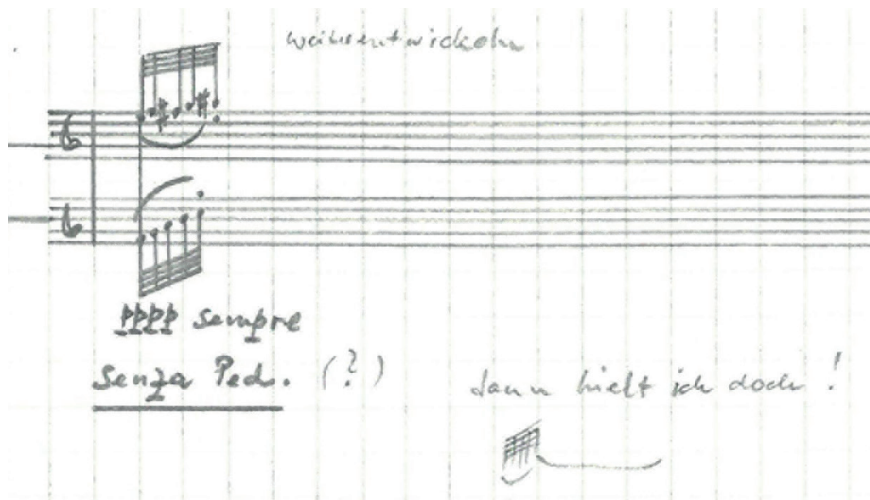 weiterentwickeln
pppp sempre
Senza Ped. (?)
dann hielt ich doch !